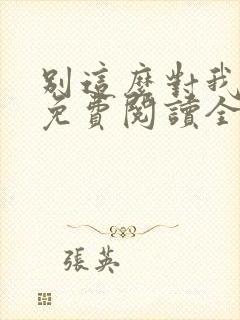 別這麼對我
免費閱讀全
張英